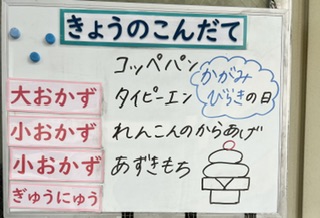 きょうのこんだて
コッペパン
かがみ
びらきの日
大おかず タイピーエン
小おかず れんこんのからあげ
小おかず あずきもち
ぎゅうにゅう